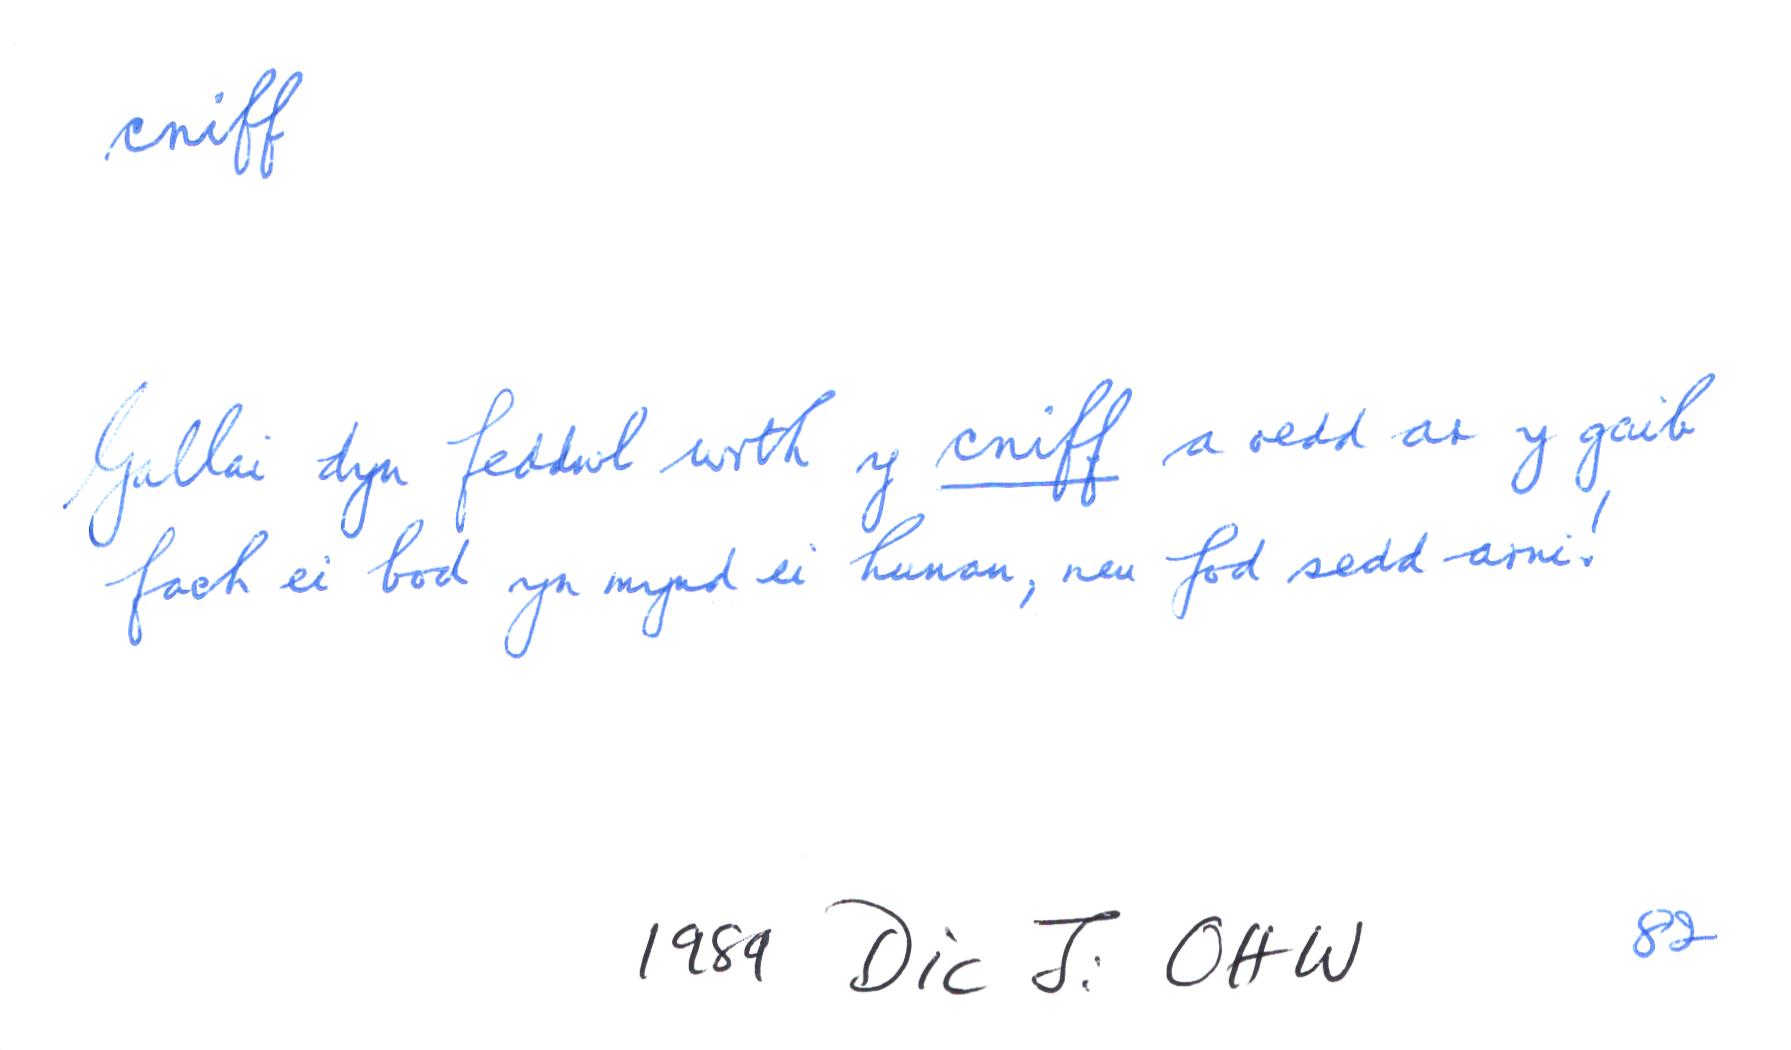 cniff
Gallai dyn feddwl wrth y cniff a oedd ar y gaib
fach ei bod yn mynd ei hunan, neu fod sedd arni!
1989 Dic J: OHW 82